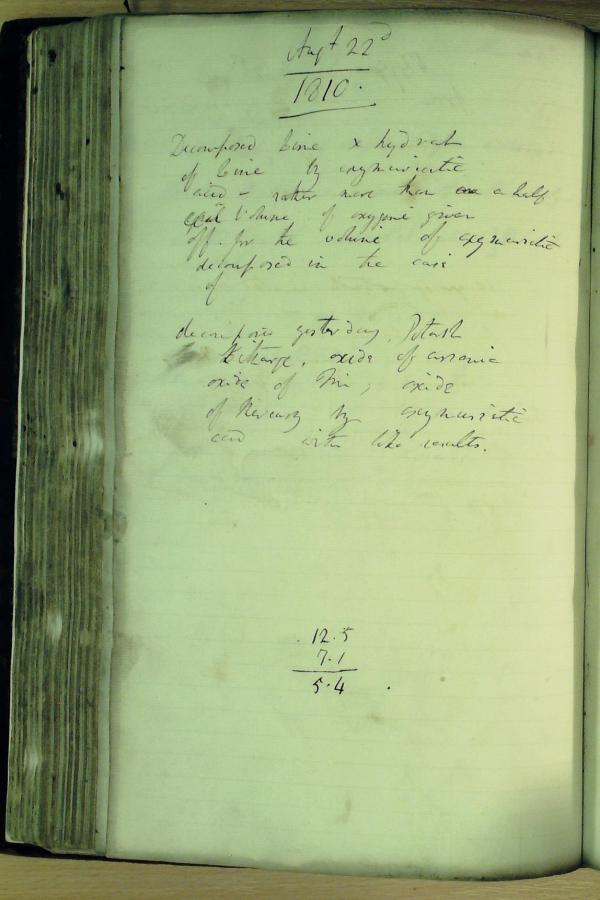 Augt 22d
1810.
Decomposed Lime & hydrat
of Lime by oxymuriatic
acid - rather more than a half
Volume of oxygene given
off. for the volume of oxymuriatic
decomposed in the case
of
decomposed yesterday, Potash
Litharge, oxide of arsenic
oxide of Tin, oxide
of Mercury by oxymuriatic
acid with like results.
12.5
7.1
5.4